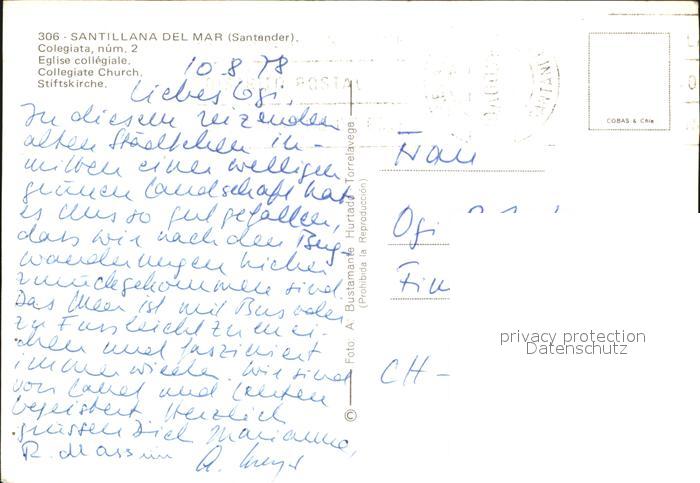 306 - SANTILLANA DEL MAR (Santander).
Colegiata, núm. 2
Eglise collégiale.
Collegiate Church.
Stiftskirche.
10.8.78
Liebes Ogi,
In diesem reizenden
alten Städtchen in-
mitten einer welligen
grünen Landschaft hat
es uns so gut gefallen,
dass wir nach den Berg-
wanderungen hieher
zurückgekommen sind.
Das Meer ist mit Bus oder
zu Fuss leicht zu errei-
chen und fasziniert
immer wieder. Wir sind
von Land und Leuten
begeistert. Herzlich
grüssen Dich Marianne,
R.
A.
© Foto: A. Bustamante Hurtado - Torrelavega
(Prohibida la Reproducción)
POSTAL
COBAS & Cía
Frau
Ogi
CH -
privacy protection
Datenschutz